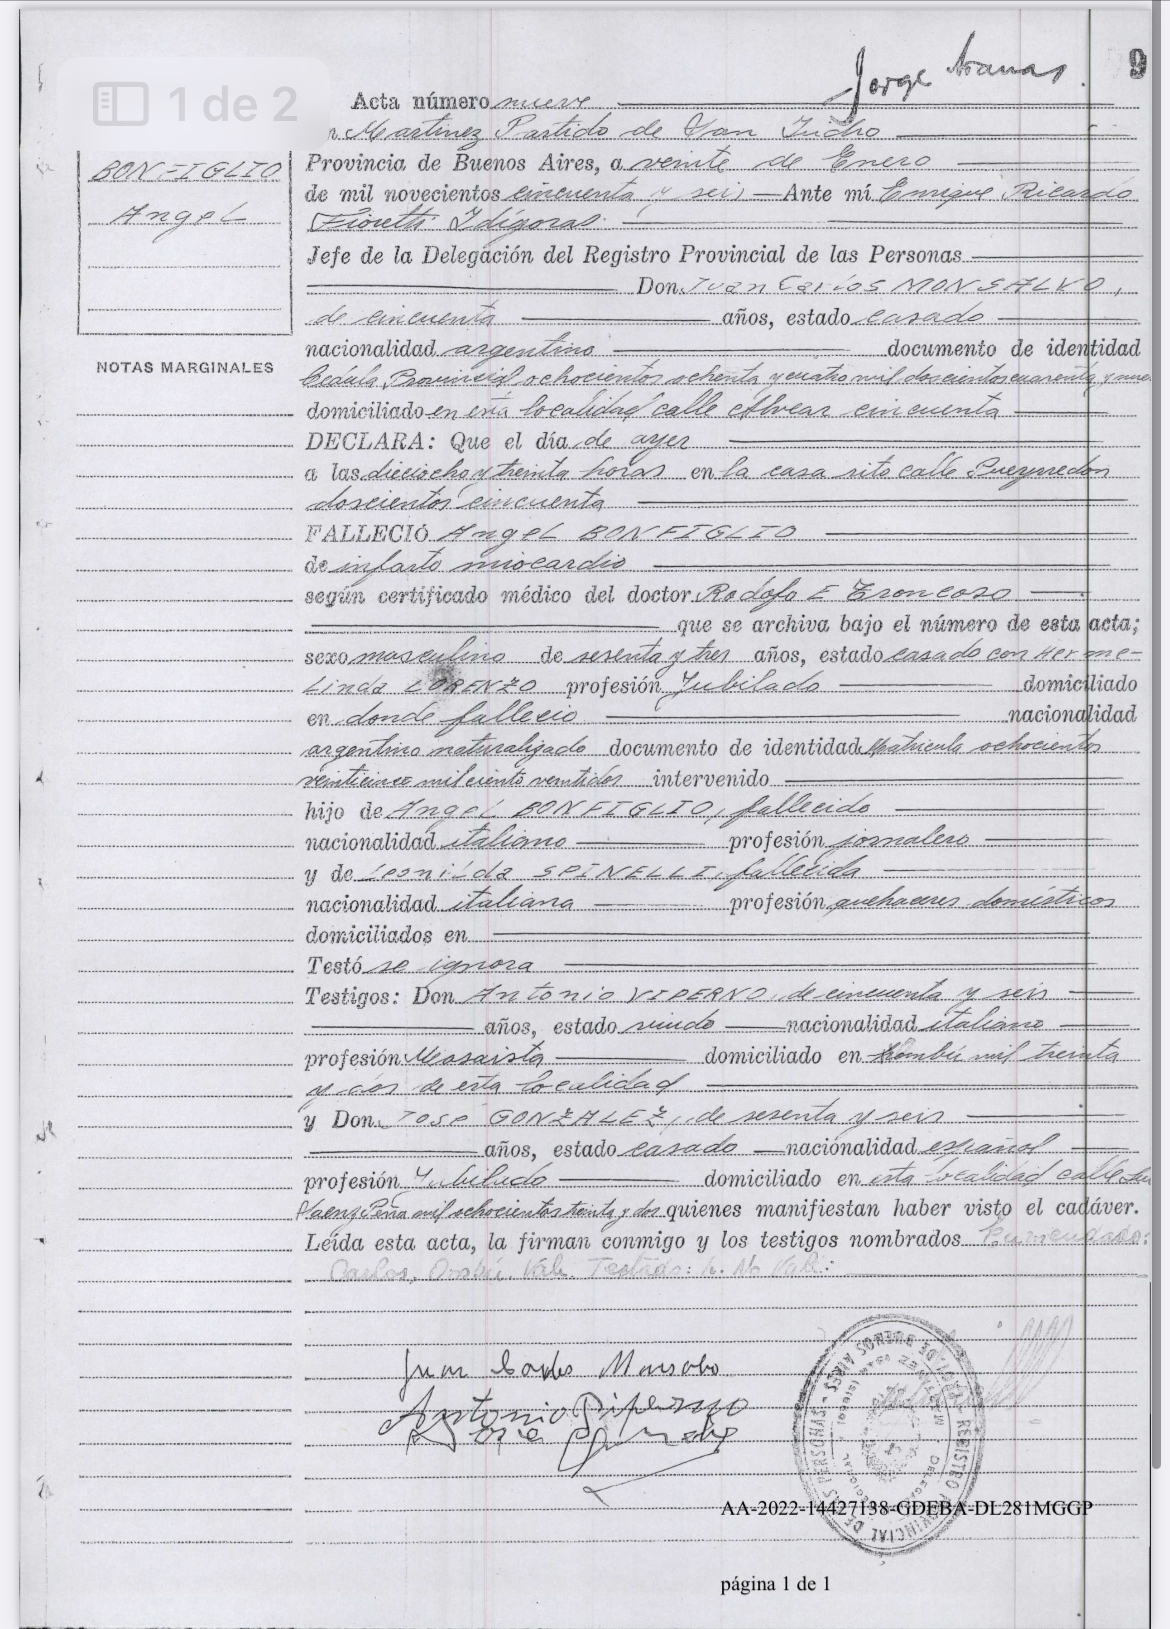 Jorge Aranas
9
1 de 2
Acta número nueve
Martinez Partido de San Isidro
BONFIGLIO
Provincia de Buenos Aires, a veinte de Enero
de mil novecientos cincuenta y seis Ante mí Enrique Ricardo
Angel
Fioretti Idígoras
Jefe de la Delegación del Registro Provincial de las Personas
Don Juan Carlos MONSALVO,
de cincuenta años, estado casado
nacionalidad argentino documento de identidad
NOTAS MARGINALES
Cédula Provincial ochocientos ochenta y cuatro mil doscientos cuarenta y nueve
domiciliado en esta localidad calle Alvear cincuenta
DECLARA: Que el día de ayer
a las dieciocho y treinta horas en la casa sito calle Pueyrredon
doscientos cincuenta
FALLECIÓ Angel BONFIGLIO
de infarto miocardio
según certificado médico del doctor Rodolfo E Troncoso
que se archiva bajo el número de esta acta;
sexo masculino de sesenta y tres años, estado casado con Herme-
Linda LORENZO profesión Jubilado domiciliado
en donde fallecio nacionalidad
argentino naturalizado documento de identidad Matricula ochocientos
veinticinco mil ciento veintidos intervenido
hijo de Angel BONFIGLIO, fallecido
nacionalidad italiano profesión jornalero
y de Leonilda SPINELLI, fallecida
nacionalidad italiana profesión quehaceres domésticos
domiciliados en
Testó se ignora
Testigos: Don Antonio VIPERNO, de cincuenta y seis
años, estado viudo nacionalidad italiano
profesión Mosaista domiciliado en Ombú mil treinta
y dos de esta localidad
y Don Jose GONZALEZ, de sesenta y seis
años, estado casado nacionalidad español
profesión Jubilado domiciliado en esta localidad calle
Saenz Peña mil ochocientos treinta y dos quienes manifiestan haber visto el cadáver.
Leída esta acta, la firman conmigo y los testigos nombrados Enmendado:
Carlos, Ombú. Vale. Testado: Vale:
Juan Carlos Monsalvo
Antonio Piperno
Jose Gonzalez
REGISTRO PROVINCIAL DE LAS PERSONAS - BUENOS AIRES
AA-2022-14427138-GDEBA-DL281MGGP
página 1 de 1